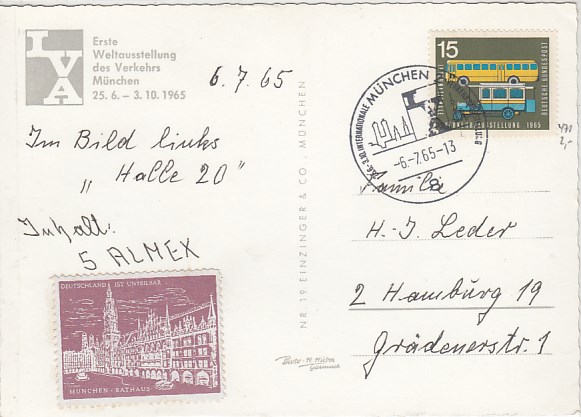 IVA
Erste
Weltausstellung
des Verkehrs
München
25. 6. – 3. 10. 1965
6.7.65
Im Bild links
„Halle 20"
Inhalt:
5 ALMEX
DEUTSCHLAND IST UNTEILBAR
MÜNCHEN - RATHAUS
NR. 19 EINZINGER & CO., MÜNCHEN
15
DEUTSCHE BUNDESPOST
VERKEHRSAUSSTELLUNG 1965
MÜNCHEN
INTERNATIONALE
-6.-7.65-13
8
Familie
H.-J. Leder
2 Hamburg 19
Grädenerstr. 1